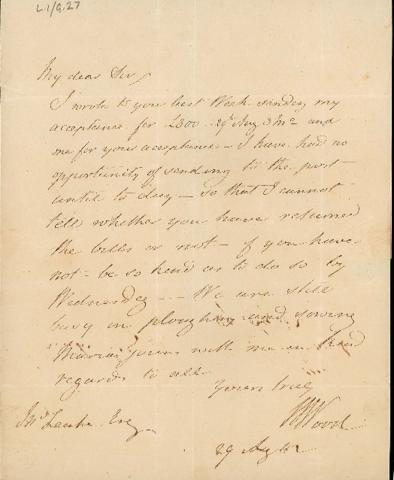 L.1/G.27
My dear Sir/
I wrote to you last Week sending my
acceptance for £300 29 Aug 3 Mo and
one for your acceptance — I have had no
opportunity of sending to the post
until to day — so that I cannot
tell whether you have returned
the bills or not — if you have
not — be so kind as to do so by
Wednesday — — We are still
busy in ploughing and sowing
joins with me in kind
regards to all
Yours truly
Wood
29 Aug
Esq